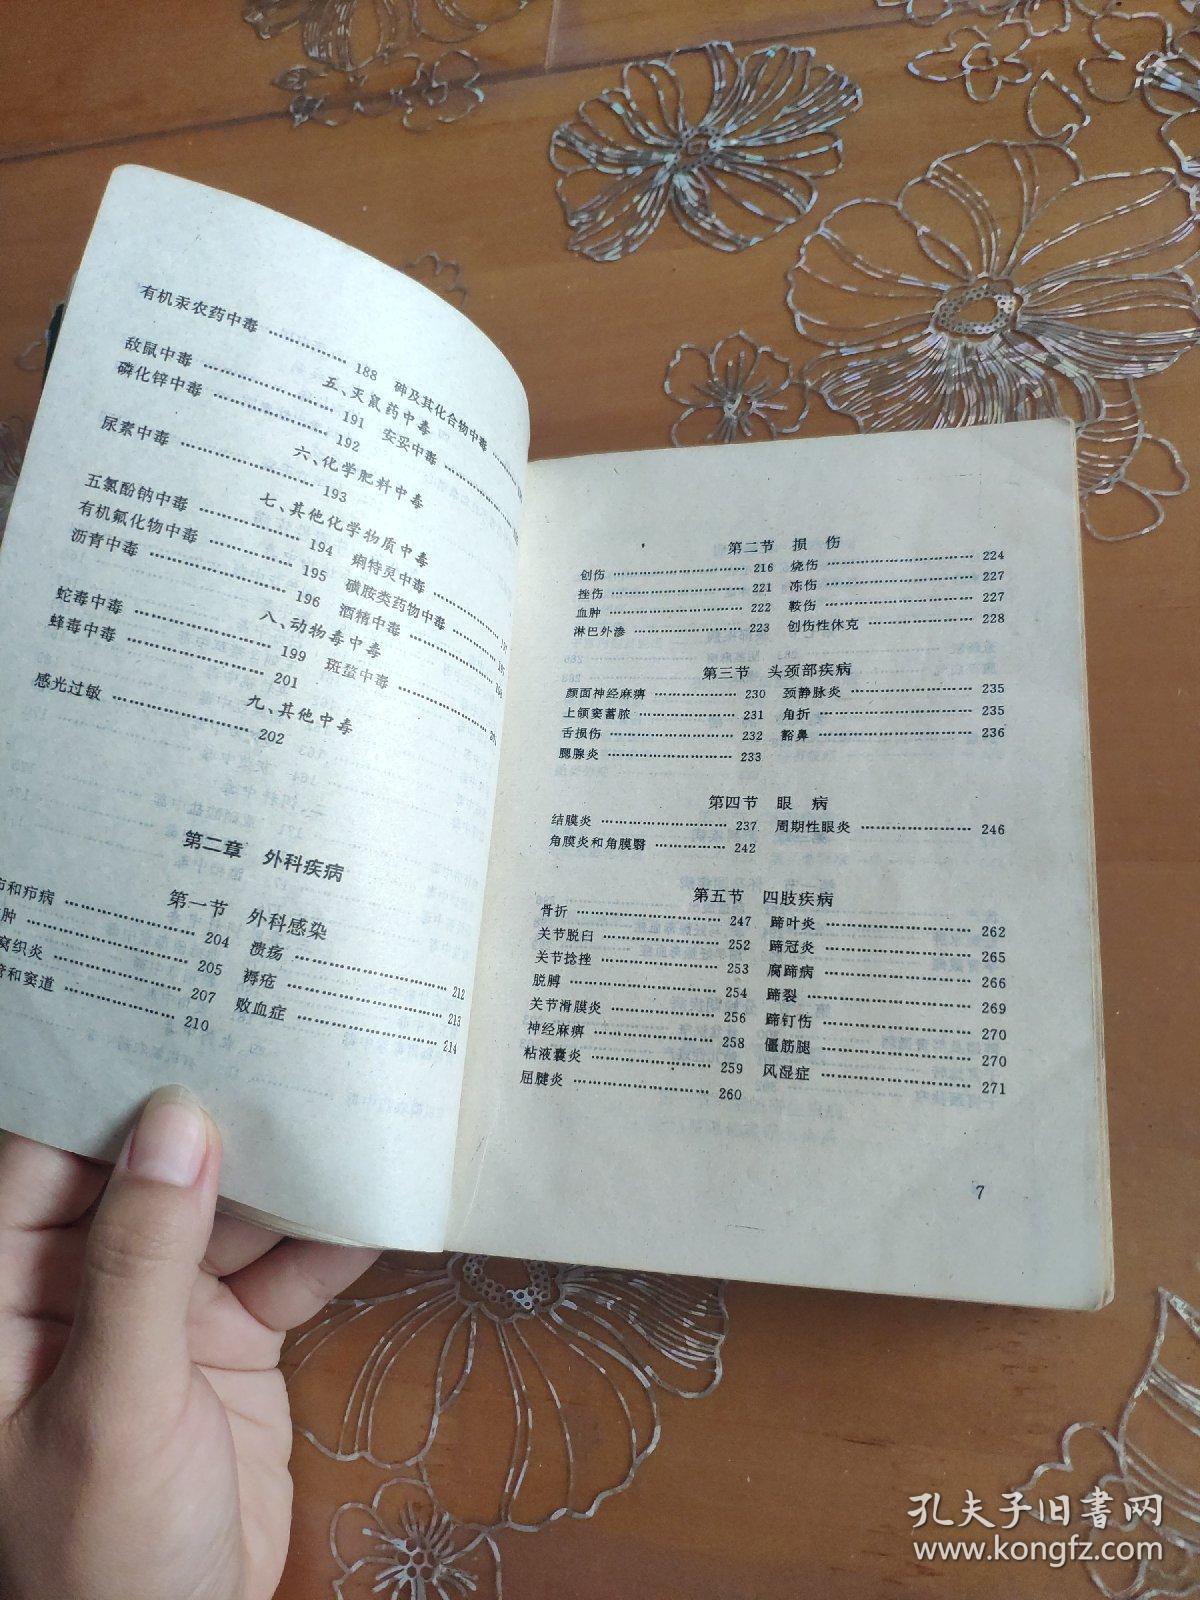 有机汞农药中毒 …… 188 砷及其化合物中毒 ……
五、灭鼠药中毒
敌鼠中毒 …… 191 安妥中毒 ……
磷化锌中毒 …… 192
六、化学肥料中毒
尿素中毒 …… 193
七、其他化学物质中毒
五氯酚钠中毒 …… 194 痢特灵中毒 ……
有机氟化物中毒 …… 195 磺胺类药物中毒 ……
沥青中毒 …… 196 酒精中毒 ……
八、动物毒中毒
蛇毒中毒 …… 199 斑蝥中毒 ……
蜂毒中毒 …… 201
九、其他中毒
感光过敏 …… 202
第二章 外科疾病
第一节 外科感染
和疖病 …… 204 溃疡 …… 212
肿 …… 205 褥疮 …… 213
窝织炎 …… 207 败血症 …… 214
管和窦道 …… 210
第二节 损伤
创伤 …… 216 烧伤 …… 224
挫伤 …… 221 冻伤 …… 227
血肿 …… 222 鞍伤 …… 227
淋巴外渗 …… 223 创伤性休克 …… 228
第三节 头颈部疾病
颜面神经麻痹 …… 230 颈静脉炎 …… 235
上颌窦蓄脓 …… 231 角折 …… 235
舌损伤 …… 232 豁鼻 …… 236
腮腺炎 …… 233
第四节 眼病
结膜炎 …… 237 周期性眼炎 …… 246
角膜炎和角膜翳 …… 242
第五节 四肢疾病
骨折 …… 247 蹄叶炎 …… 262
关节脱臼 …… 252 蹄冠炎 …… 265
关节捻挫 …… 253 腐蹄病 …… 266
脱膊 …… 254 蹄裂 …… 269
关节滑膜炎 …… 256 蹄钉伤 …… 270
神经麻痹 …… 258 僵筋腿 …… 270
粘液囊炎 …… 259 风湿症 …… 271
屈腱炎 …… 260
7
孔夫子旧書网
www.kongfz.com